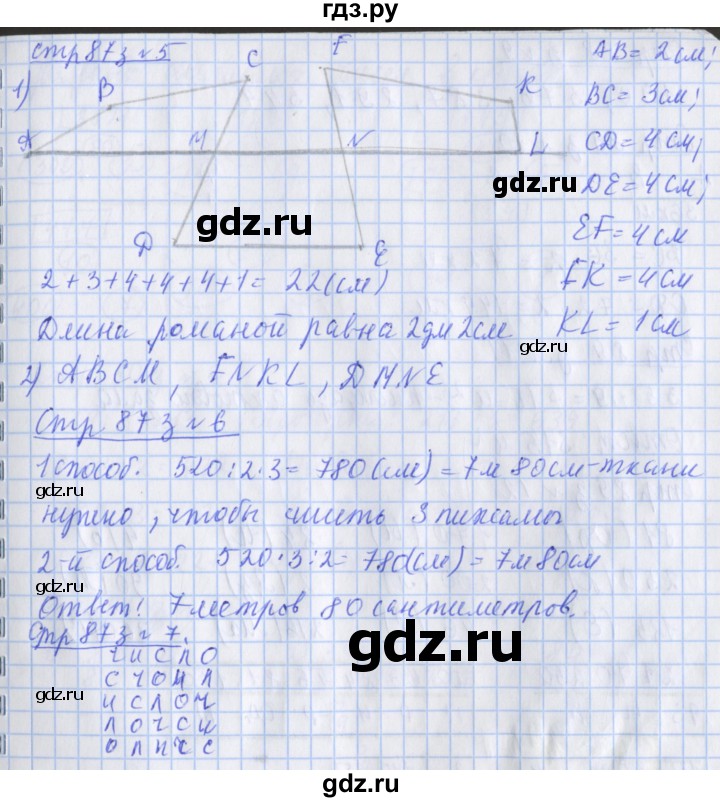 гдз.ру
стр 87 з № 5
1)
A B C F K
M N L
D E
AB = 2 см;
BC = 3 см;
CD = 4 см;
DE = 4 см;
EF = 4 см
FK = 4 см
KL = 1 см
gdz.ru
gdz.ru
2+3+4+4+4+4+1= 22(см)
Длина ломаной равна 2дм 2см
2) ABCM, FNKL, DMNE
Стр 87 з № 6
gdz.ru
1 способ. 520:2·3= 780(см) = 7м 80см-ткани
gdz.ru
нужно, чтобы сшить 3 пижамы
2-й способ. 520·3:2= 780(см) = 7м80см
gdz.ru
Ответ: 7 метров 80 сантиметров.
Стр 87 з № 7.
gdz.ru
ч и с л о
и с л о ч
gdz.ru
л о ч с и
gdz.ru